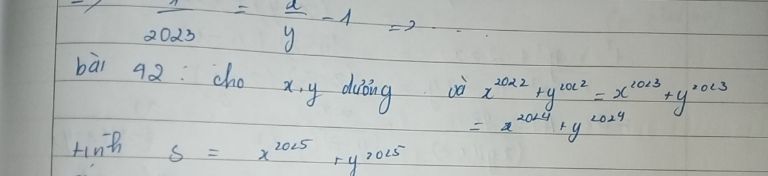 2023 = y - 1 =>
bài 92 : cho x, y dương và x^2022 + y^2022 = x^2023 + y^2023
= x^2024 + y^2024
tính S = x^2025 + y^2025